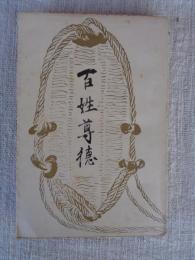 百姓尊徳